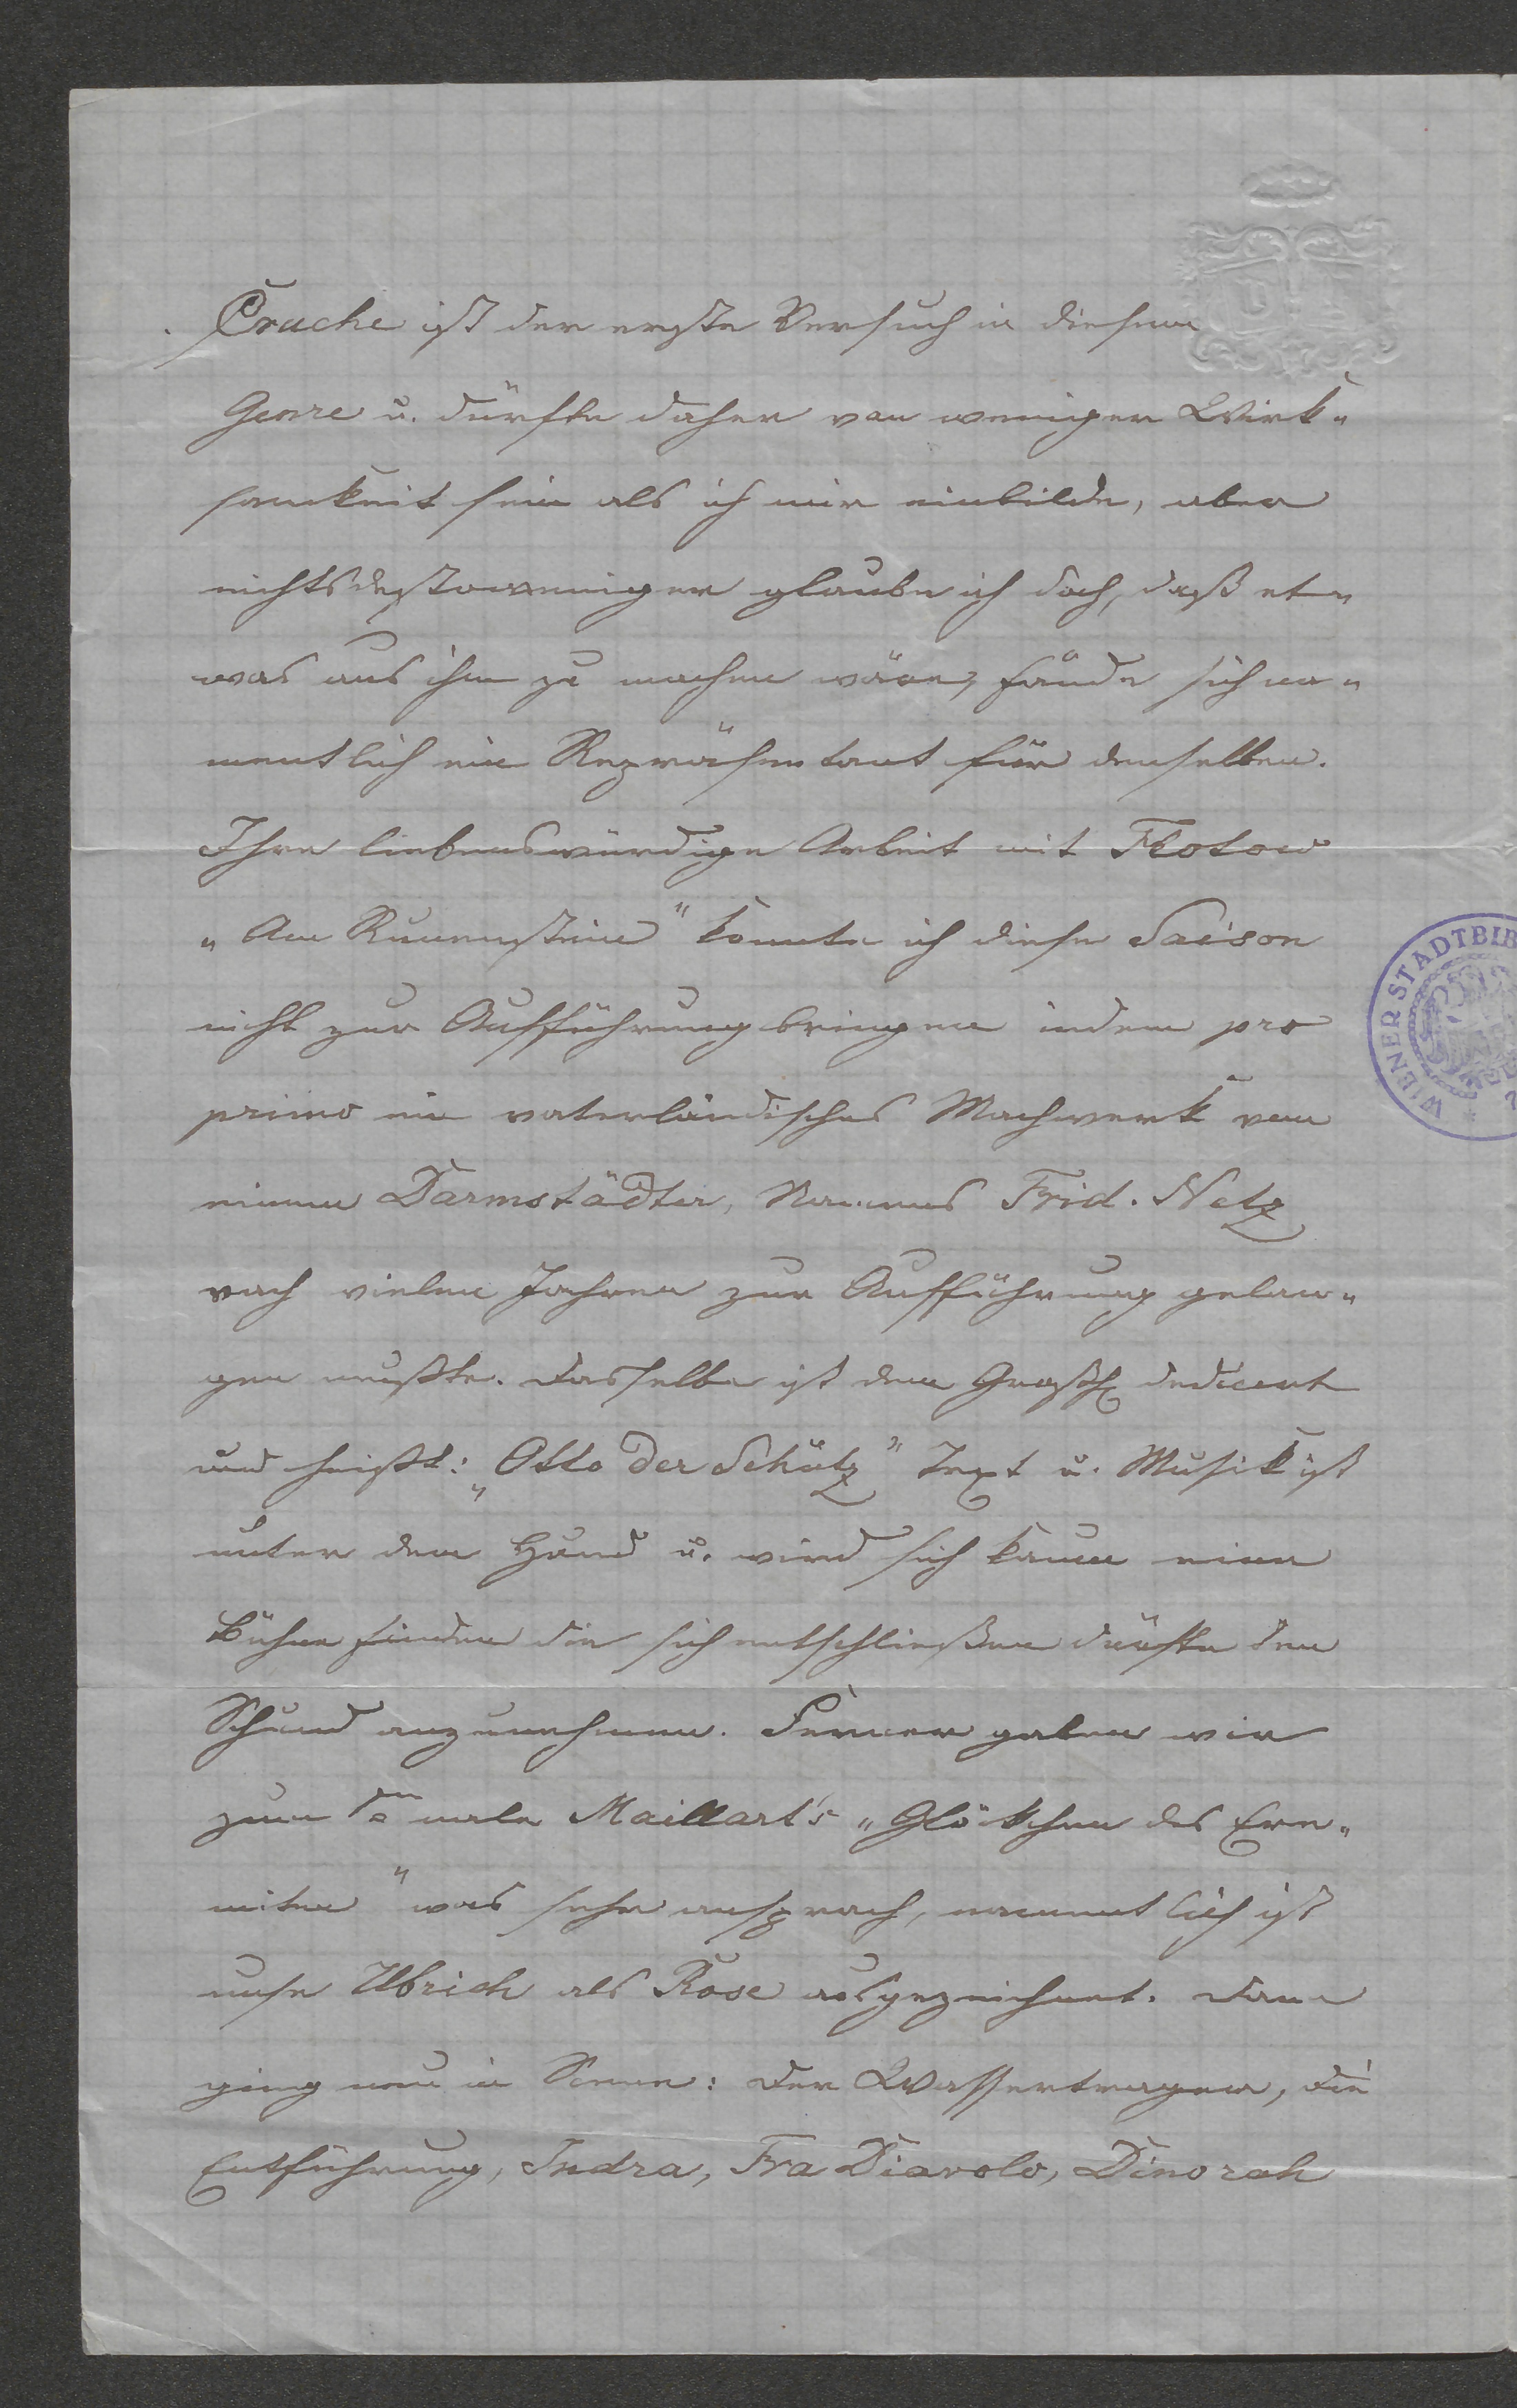 Crache ist der erste Versuch in diesem
Genre u. dürfte daher von weniger Wirk„
samkeit sein als ich mir einbilde, aber
nichtsdestoweniger glaube ich doch, daß et„
was aus ihm zu machen wäre, fände sich na„
mentlich ein Repräsentant für denselben.
Ihre liebenswürdige Arbeit mit Flotow
„Am Runenstein" konnte ich diese Saison
nicht zur Aufführung bringen indem pro
primo ein vaterländisches Machwerk von
einem Darmstädter, Namens Frid. Netz
nach vielen Jahren zur Aufführung gelan„
gen mußte. Dasselbe ist dem Großh dedicert
und heißt: „Otto der Schütz" Text u. Musik ist
unter dem Hund u. wird sich kaum eine
Bühne finden die sich entschließen dürfte den
Schund anzunehmen. Ferner gaben wir
zum 1en male Maillart's „Glöckchen des Ere„
miten" was sehr ansprach, namentlich ist
unse Ubrich als Rose ausgezeichnet. Dann
ging neu in Scene: Der Wasserträger, die
Entführung, Indra, Fra Diavolo, Dinorah
WIENER STADTBIB